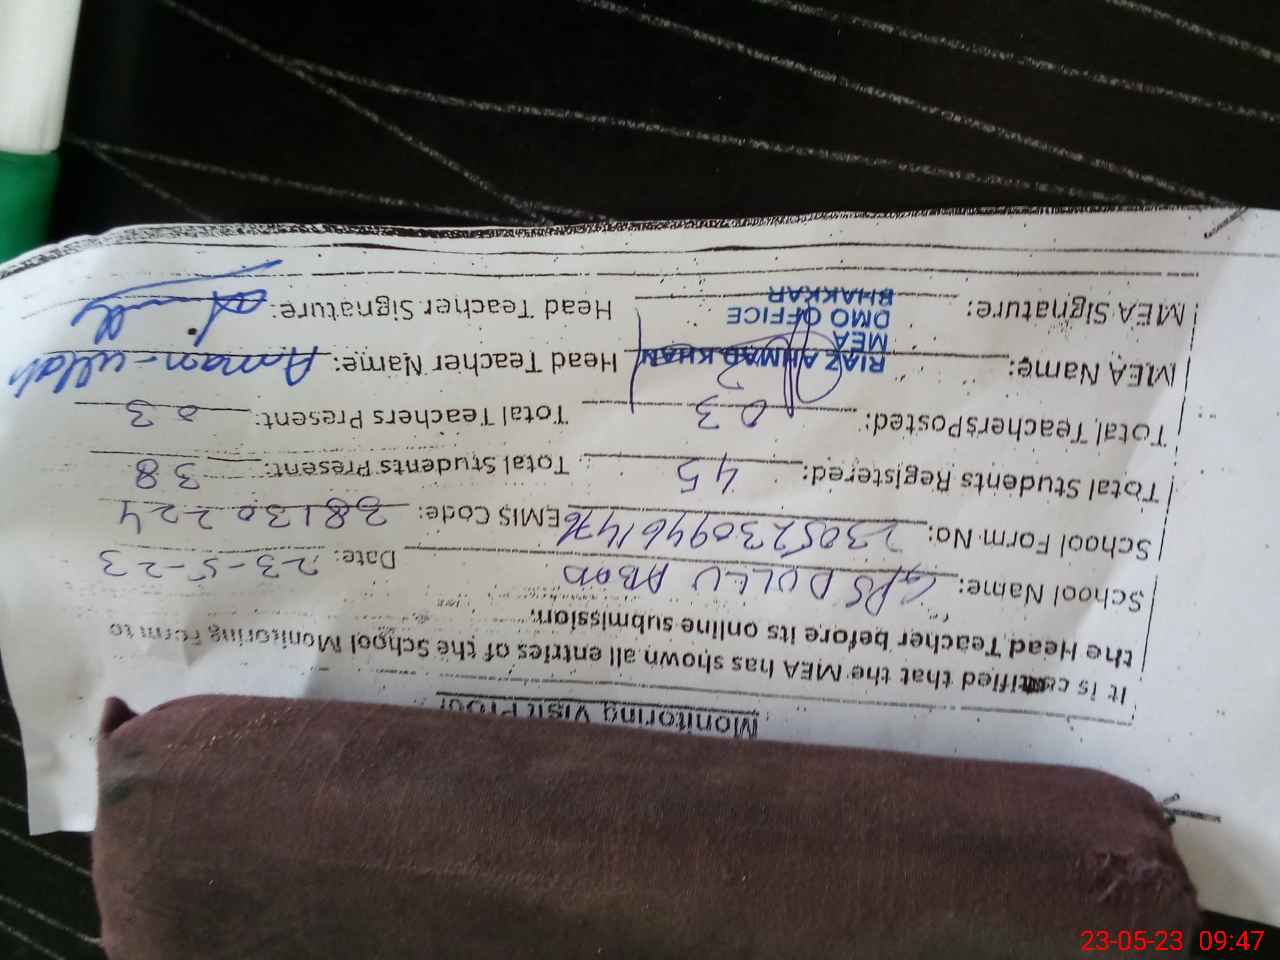 Monitoring Visit Proof
It is certified that the MEA has shown all entries of the School Monitoring Form to
the Head Teacher before its online submission.
School Name: GPS DULLU ABAD Date: 23-5-23
School Form No: 23052309461476 EMIS Code: 38130224
Total Students Registered: 45 Total Students Present: 38
Total TeachersPosted: 03 Total Teachers Present: 03
MEA Name: RIAZ AHMAD KHAN Head Teacher Name: Aman-ullah
MEA
MEA Signature: DMO OFFICE Head Teacher Signature:
BHAKKAR
23-05-23 09:47